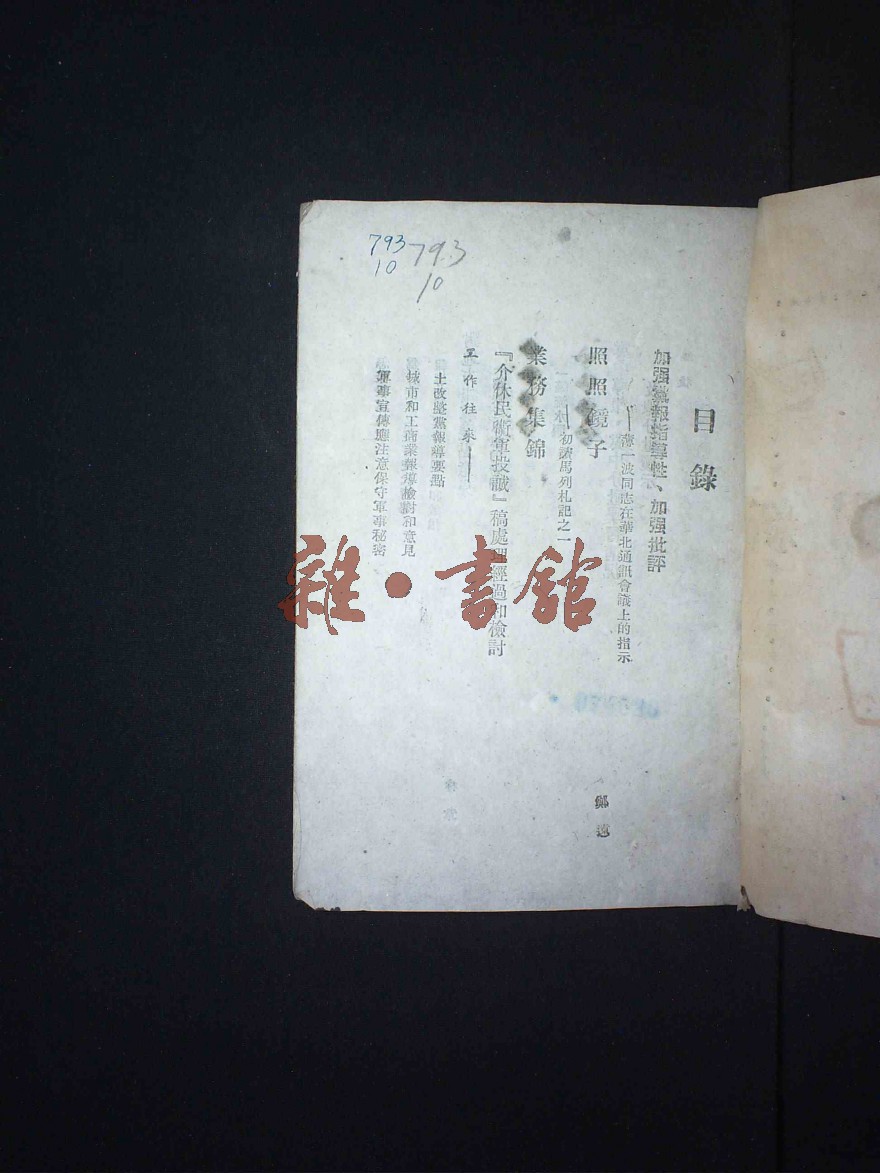 目錄
加强黨報指導性、加强批評
——薄一波同志在華北通訊會議上的指示
照照鏡子
——初讀馬列札記之一
鄉遠
業務集錦
『介休民衛軍投誠』稿處理經過和檢討
工作往來——
土改整黨報導要點
城市和工商業報導檢討和意見
軍事宣傳應注意保守軍事秘密
793
10
793
10
雜·書館